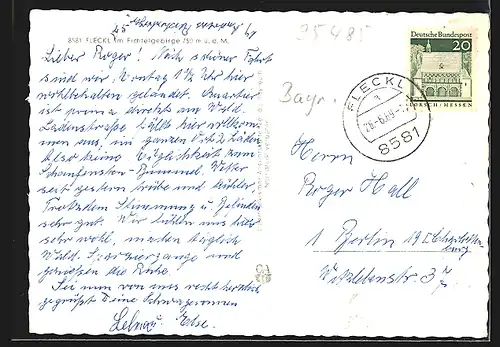 8581 FLECKL im Fichtelgebirge 750 m ü. d. M.
Lieber Roger! Nach schöner Fahrt
sind wir Montag 1 1/2 Uhr hier
wohlbehalten gelandet. Quartier
ist prima direkt am Wald.
Ladenstraße fällt hier vollkommen
aus, im ganzen Ort 2 Läden
also keine Möglichkeit zum
Schaufenster-Bummel. Wetter
seit gestern trübe und kühler,
Trotzdem Stimmung u. Befinden
sehr gut. Wir fühlen uns hier
sehr wohl, machen täglich
Wald-Spaziergänge und
genießen die Ruhe.
Sei nun von uns recht herzlich
gegrüßt Deine
Else.
25485
Bayr.
Deutsche Bundespost
20
LORSCH/HESSEN
FLECKL
8581
Herrn
Roger Hall
1 Berlin 19 (Charlottenburg
Witzlebenstr. 37